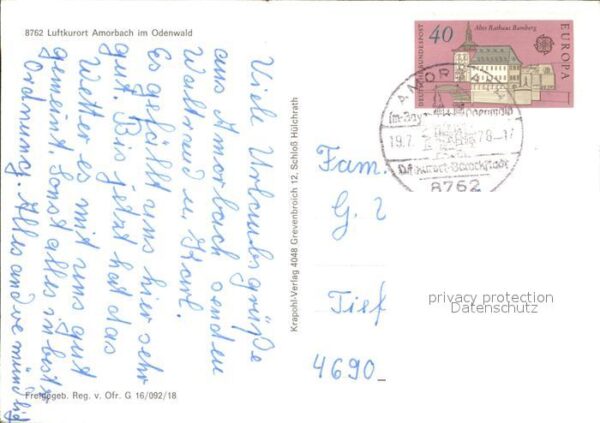 8762 Luftkurort Amorbach im Odenwald
Viele Urlaubsgrüße
aus Amorbach senden
Waltraud u. Karl.
Es gefällt uns hier sehr
gut. Bis jetzt hat das
Wetter es mit uns gut
gemeint. Sonst alles in bester
Ordnung. Alles andere mündlich
Freigegeb. Reg. v. Ofr. G 16/092/18
Krapohl-Verlag 4048 Grevenbroich 12, Schloß Hülchrath
DEUTSCHE BUNDESPOST
40
Alter Rathaus Bamberg
EUROPA
CEPT
AMOR
19.7.
78-17
Luftkurort-Barockstadt
8762
Fam.
G.
Tief
4690
privacy protection
Datenschutz